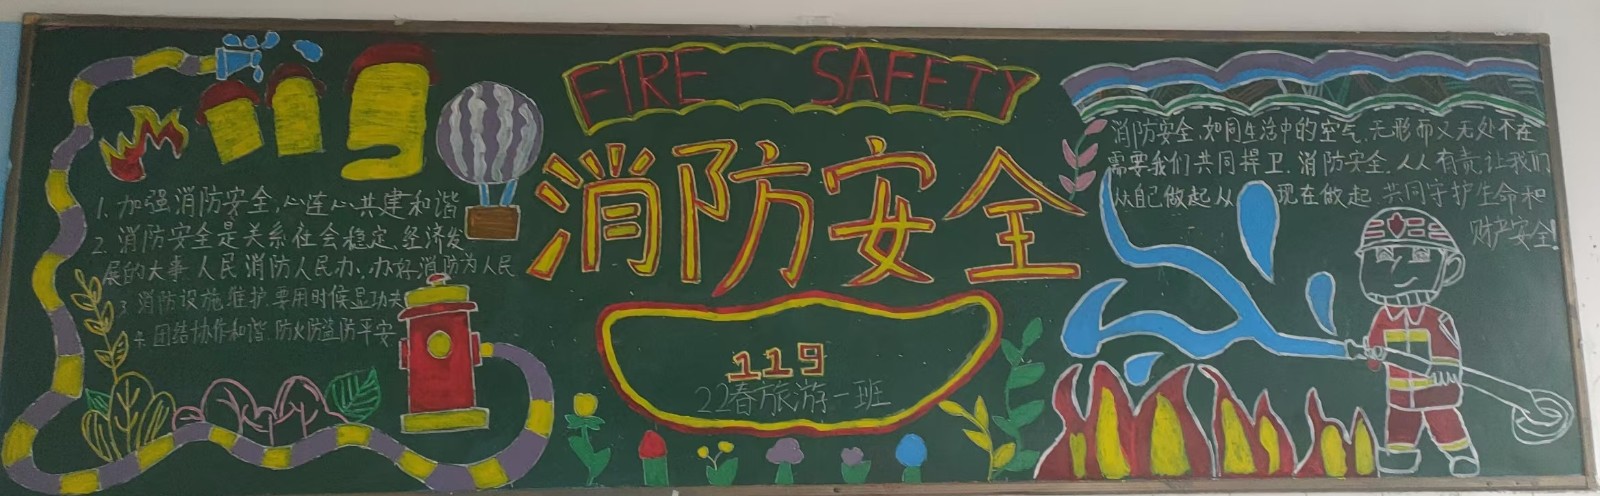 FIRE SAFETY
消防安全
1. 加强消防安全,心连心共建和谐
2. 消防安全是关系社会稳定、经济发
展的大事 人民消防人民办、办好消防为人民
3 消防设施维护,要用时候显功夫
4. 团结协作和谐.防火防盗防平安
119
22春旅游一班
消防安全,如同生活中的空气,无形而又无处不在
需要我们共同捍卫,消防安全,人人有责让我们
从自己做起从 现在做起 共同守护生命和
财产安全!